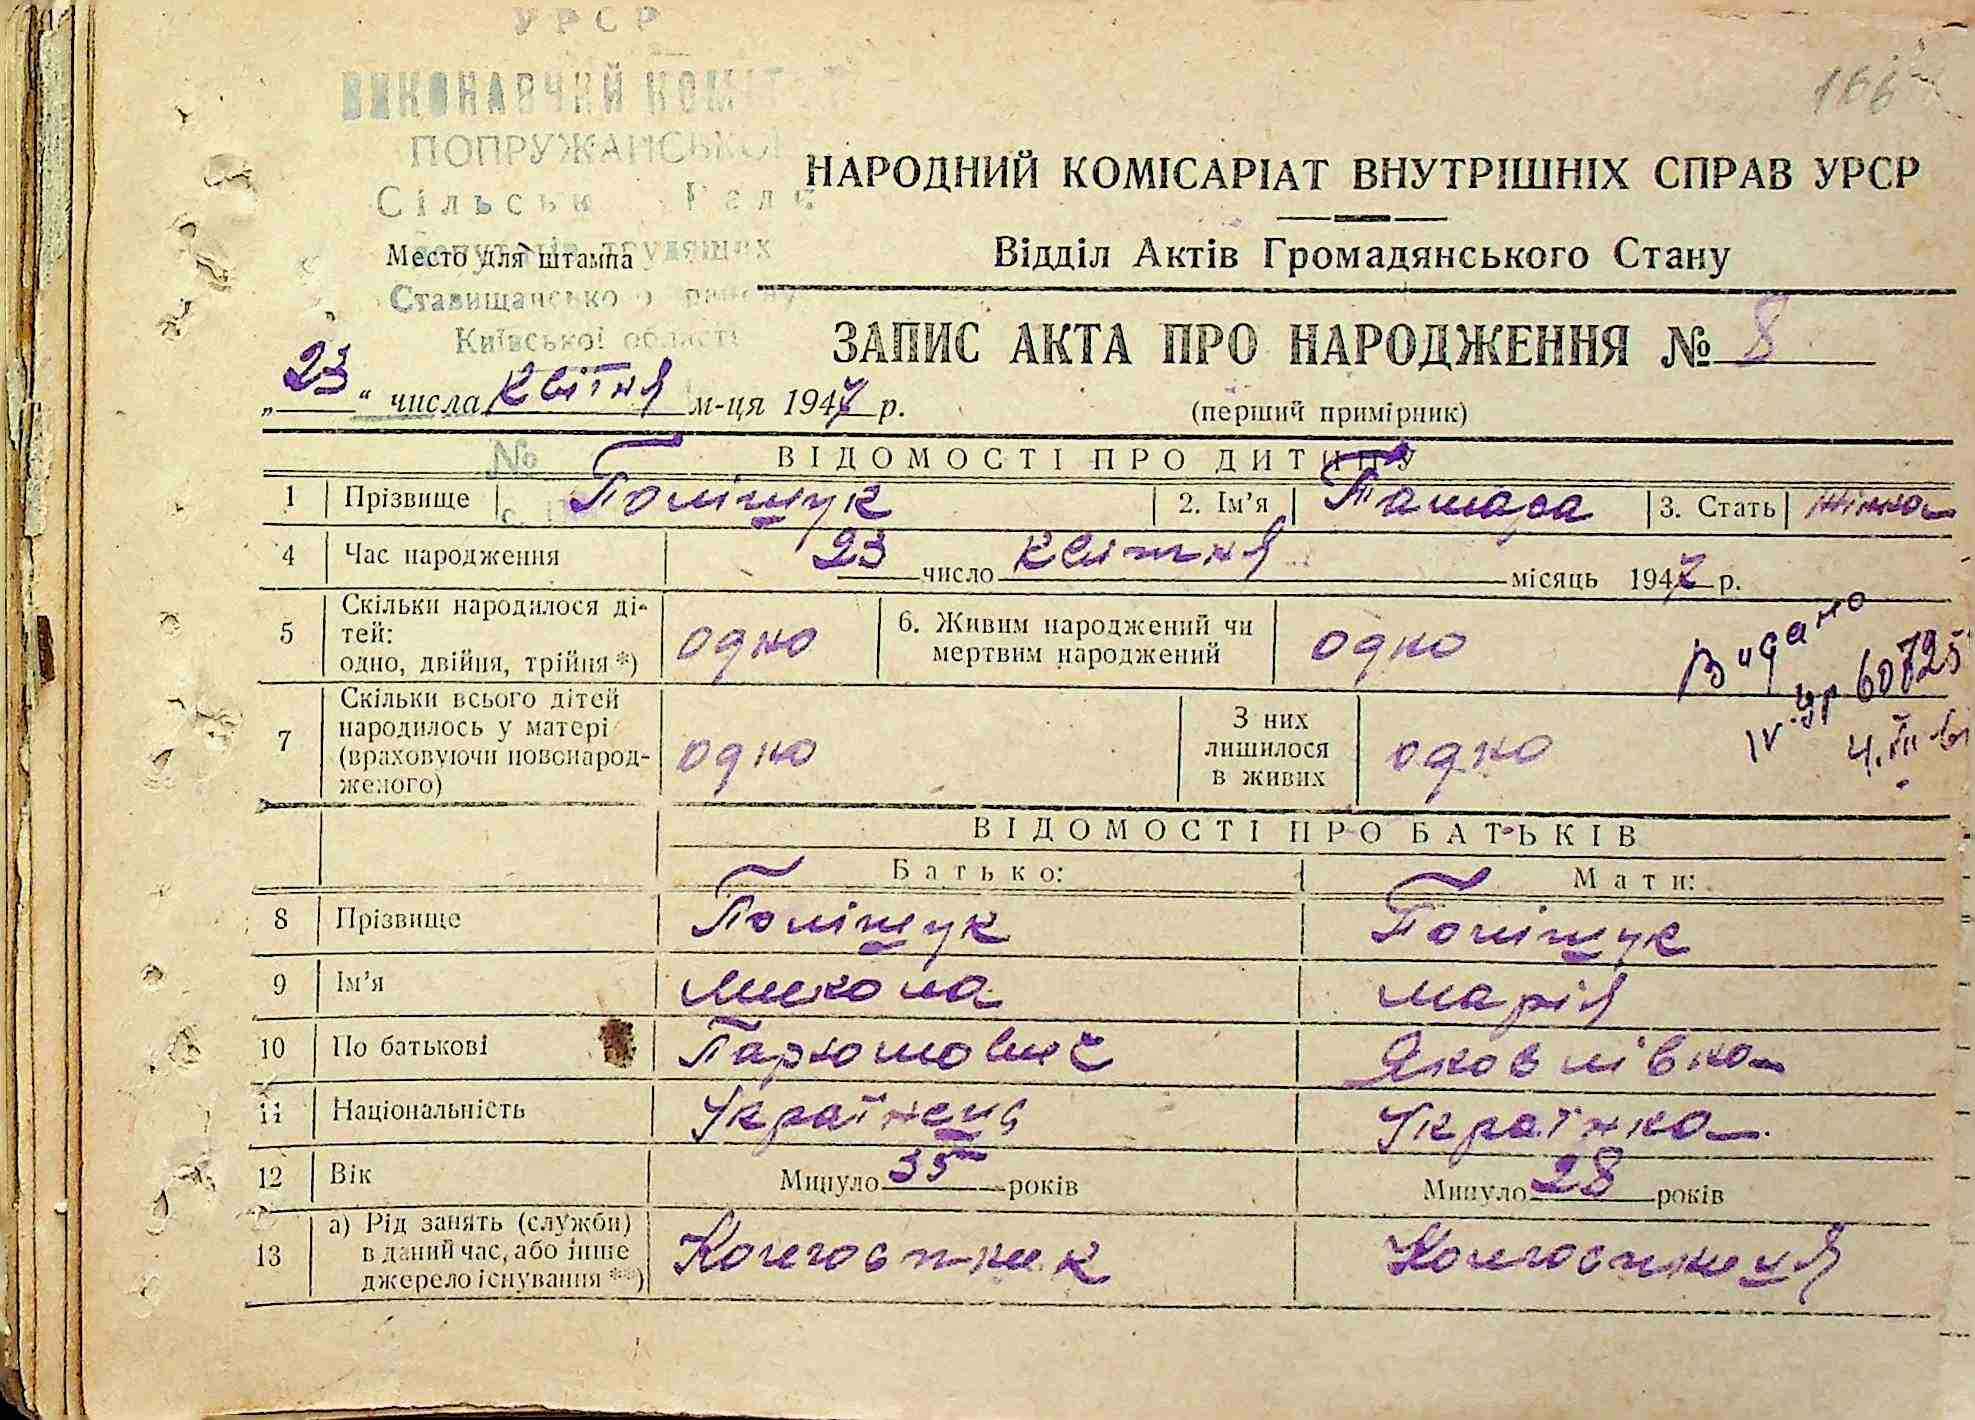 УРСР
ВИКОНАВЧИЙ КОМІТЕТ
166
ПОПРУЖАНСЬКОЇ
НАРОДНИЙ КОМІСАРІАТ ВНУТРІШНІХ СПРАВ УРСР
Сільської Ради
депутатів трудящих
Место для штампа
Відділ Актів Громадянського Стану
Ставищанського району
Київської області
ЗАПИС АКТА ПРО НАРОДЖЕННЯ № 8
„23“ числа квітня м-ця 1947 р.
(перший примірник)
№
ВІДОМОСТІ ПРО ДИТИНУ
1 Прізвище Поліщук 2. Ім’я Тамара 3. Стать жінка
4 Час народження 23 число квітня місяць 1947 р.
5 Скільки народилося ді-
тей:
одно, двійня, трійня*) одно 6. Живим народжений чи
мертвим народжений одно
Видано
IV-УР 60725
7 Скільки всього дітей
народилось у матері
(враховуючи новонарод-
женого) одно З них
лишилося
в живих одно
ВІДОМОСТІ ПРО БАТЬКІВ
Батько: Мати:
8 Прізвище Поліщук Поліщук
9 Ім’я Микола Марія
10 По батькові Пархомович Яковлівна
11 Національність Українець Українка
12 Вік Минуло 35 років Минуло 28 років
13 а) Рід занять (служби)
в даний час, або інше
джерело існування**) Колгоспник Колгоспниця